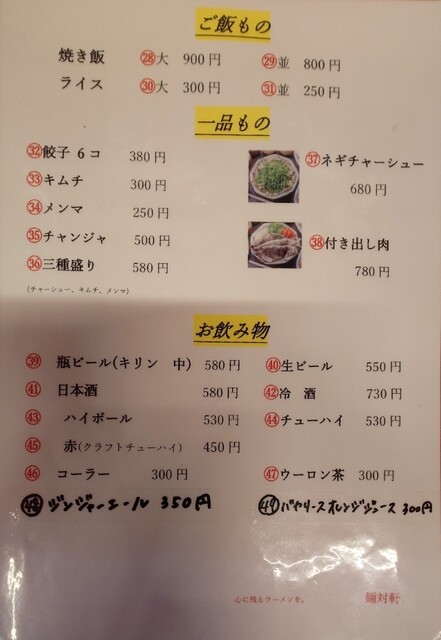 ご飯もの
焼き飯 ㉘大 900円 ㉙並 800円
ライス ㉚大 300円 ㉛並 250円
一品もの
㉜餃子 6コ 380円
㉝キムチ 300円
㉞メンマ 250円
㉟チャンジャ 500円
㊱三種盛り 580円
(チャーシュー、キムチ、メンマ)
㊲ネギチャーシュー
680円
㊳付き出し肉
780円
お飲み物
㊴ 瓶ビール(キリン 中) 580円 ㊵生ビール 550円
㊶ 日本酒 580円 ㊷冷 酒 730円
㊸ ハイボール 530円 ㊹チューハイ 530円
㊺ 赤(クラフトチューハイ) 450円
㊻ コーラー 300円 ㊼ウーロン茶 300円
㊽ ジンジャーエール 350円 ㊾バヤリースオレンジジュース 300円
心に残るラーメンを。 麺対軒